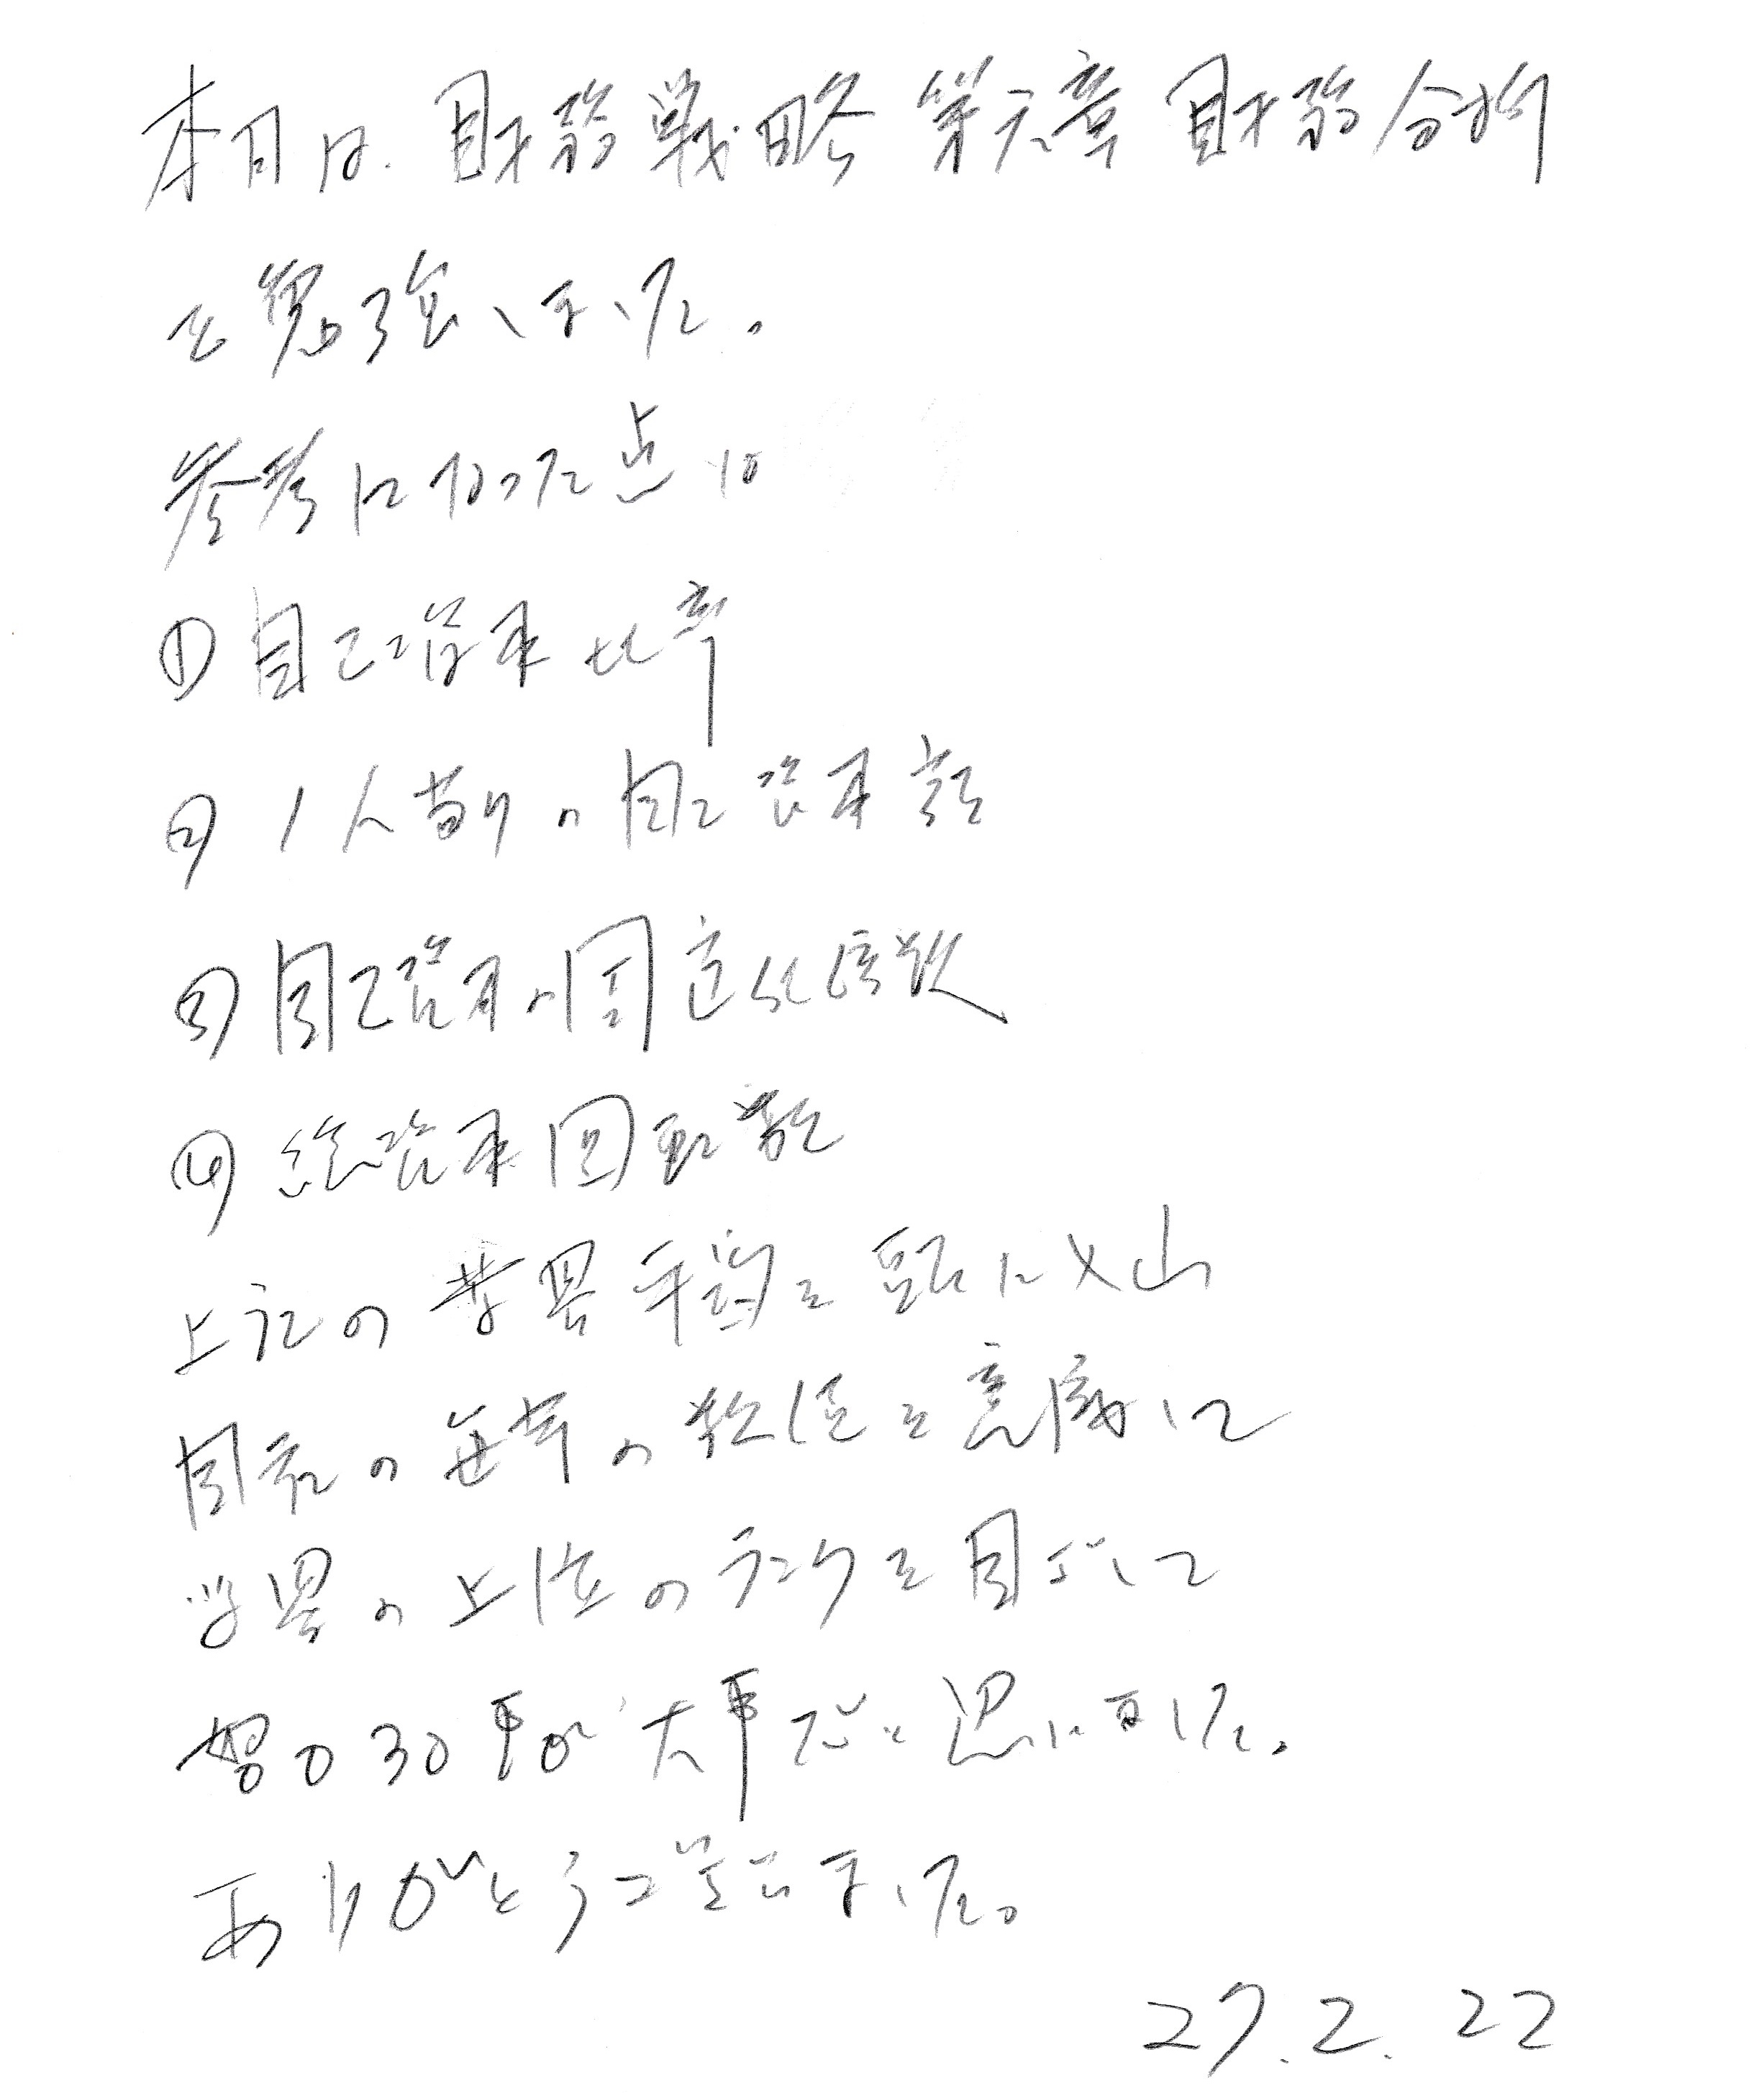 本日は、財務戦略 第六章 財務分析
を勉強しました。
参考になった点は
① 自己資本比率
② 1人当りの自己資本額
③ 自己資本の固定化倍数
④ 総資本回転数
上記の業界平均を頭に入れ
自社の毎年の数値を意識して
業界の上位のランクを目ざして
努力する事が大事だと思いました。
ありがとうございました。
27.2.22